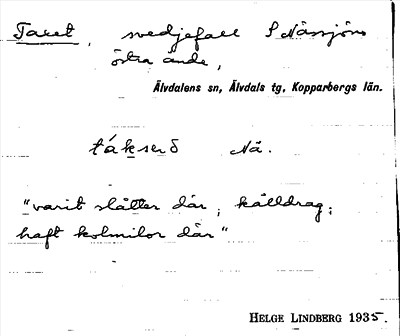 Taxet, svedjefall S Nässjöns
östra ände,
Älvdalens sn, Älvdals tg, Kopparbergs län.
Nå.
"varit slåtter där, källdrag;
haft kolmilor där"
HELGE LINDBERG 1935.